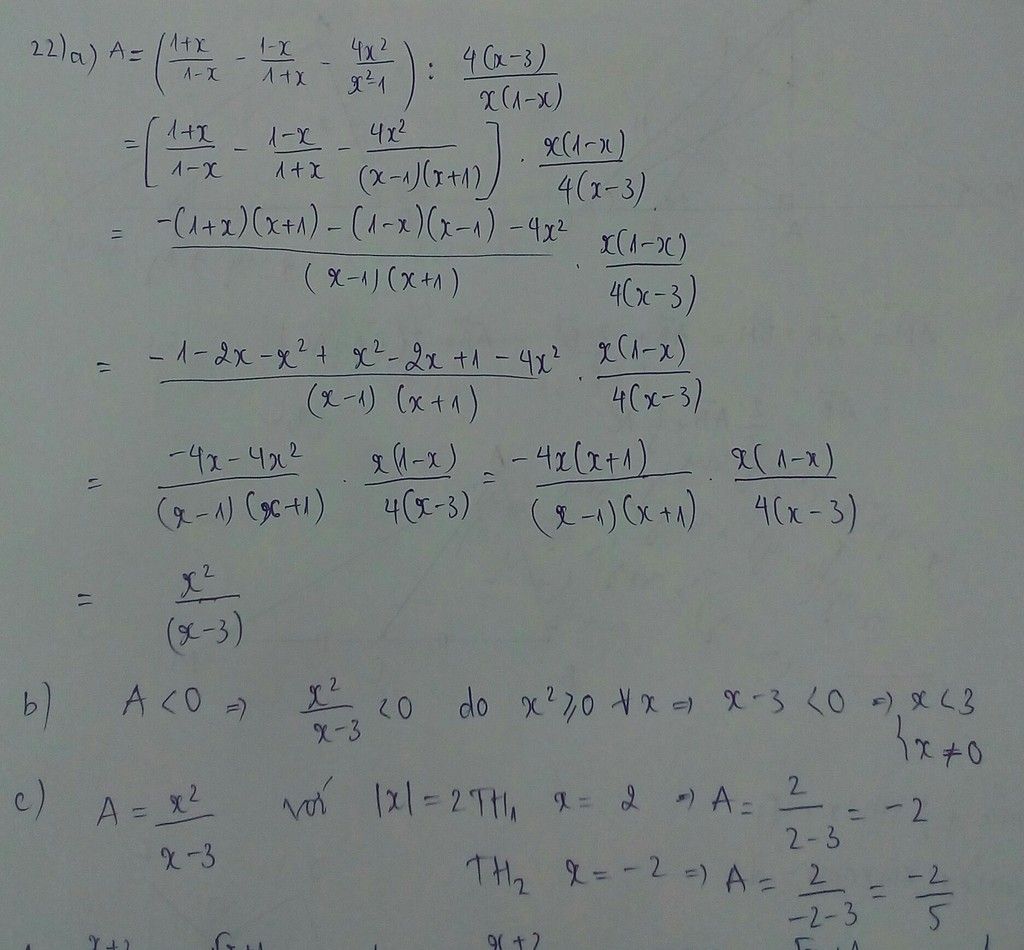 22) a) A = ( (1+x)/(1-x) - (1-x)/(1+x) - 4x²/(x²-1) ) : 4(x-3)/(x(1-x))
= [ (1+x)/(1-x) - (1-x)/(1+x) - 4x²/((x-1)(x+1)) ] . x(1-x)/(4(x-3))
= (-(1+x)(x+1) - (1-x)(x-1) - 4x²)/((x-1)(x+1)) . x(1-x)/(4(x-3))
= (-1-2x-x²+x²-2x+1-4x²)/((x-1)(x+1)) . x(1-x)/(4(x-3))
= (-4x-4x²)/((x-1)(x+1)) . x(1-x)/(4(x-3)) = -4x(x+1)/((x-1)(x+1)) . x(1-x)/(4(x-3))
= x²/(x-3)
b) A < 0 => x²/(x-3) < 0 do x² ≥ 0 ∀x => x-3 < 0 => { x < 3
x ≠ 0
c) A = x²/(x-3) với |x| = 2 TH1 x = 2 => A = 2/(2-3) = -2
TH2 x = -2 => A = 2/(-2-3) = -2/5